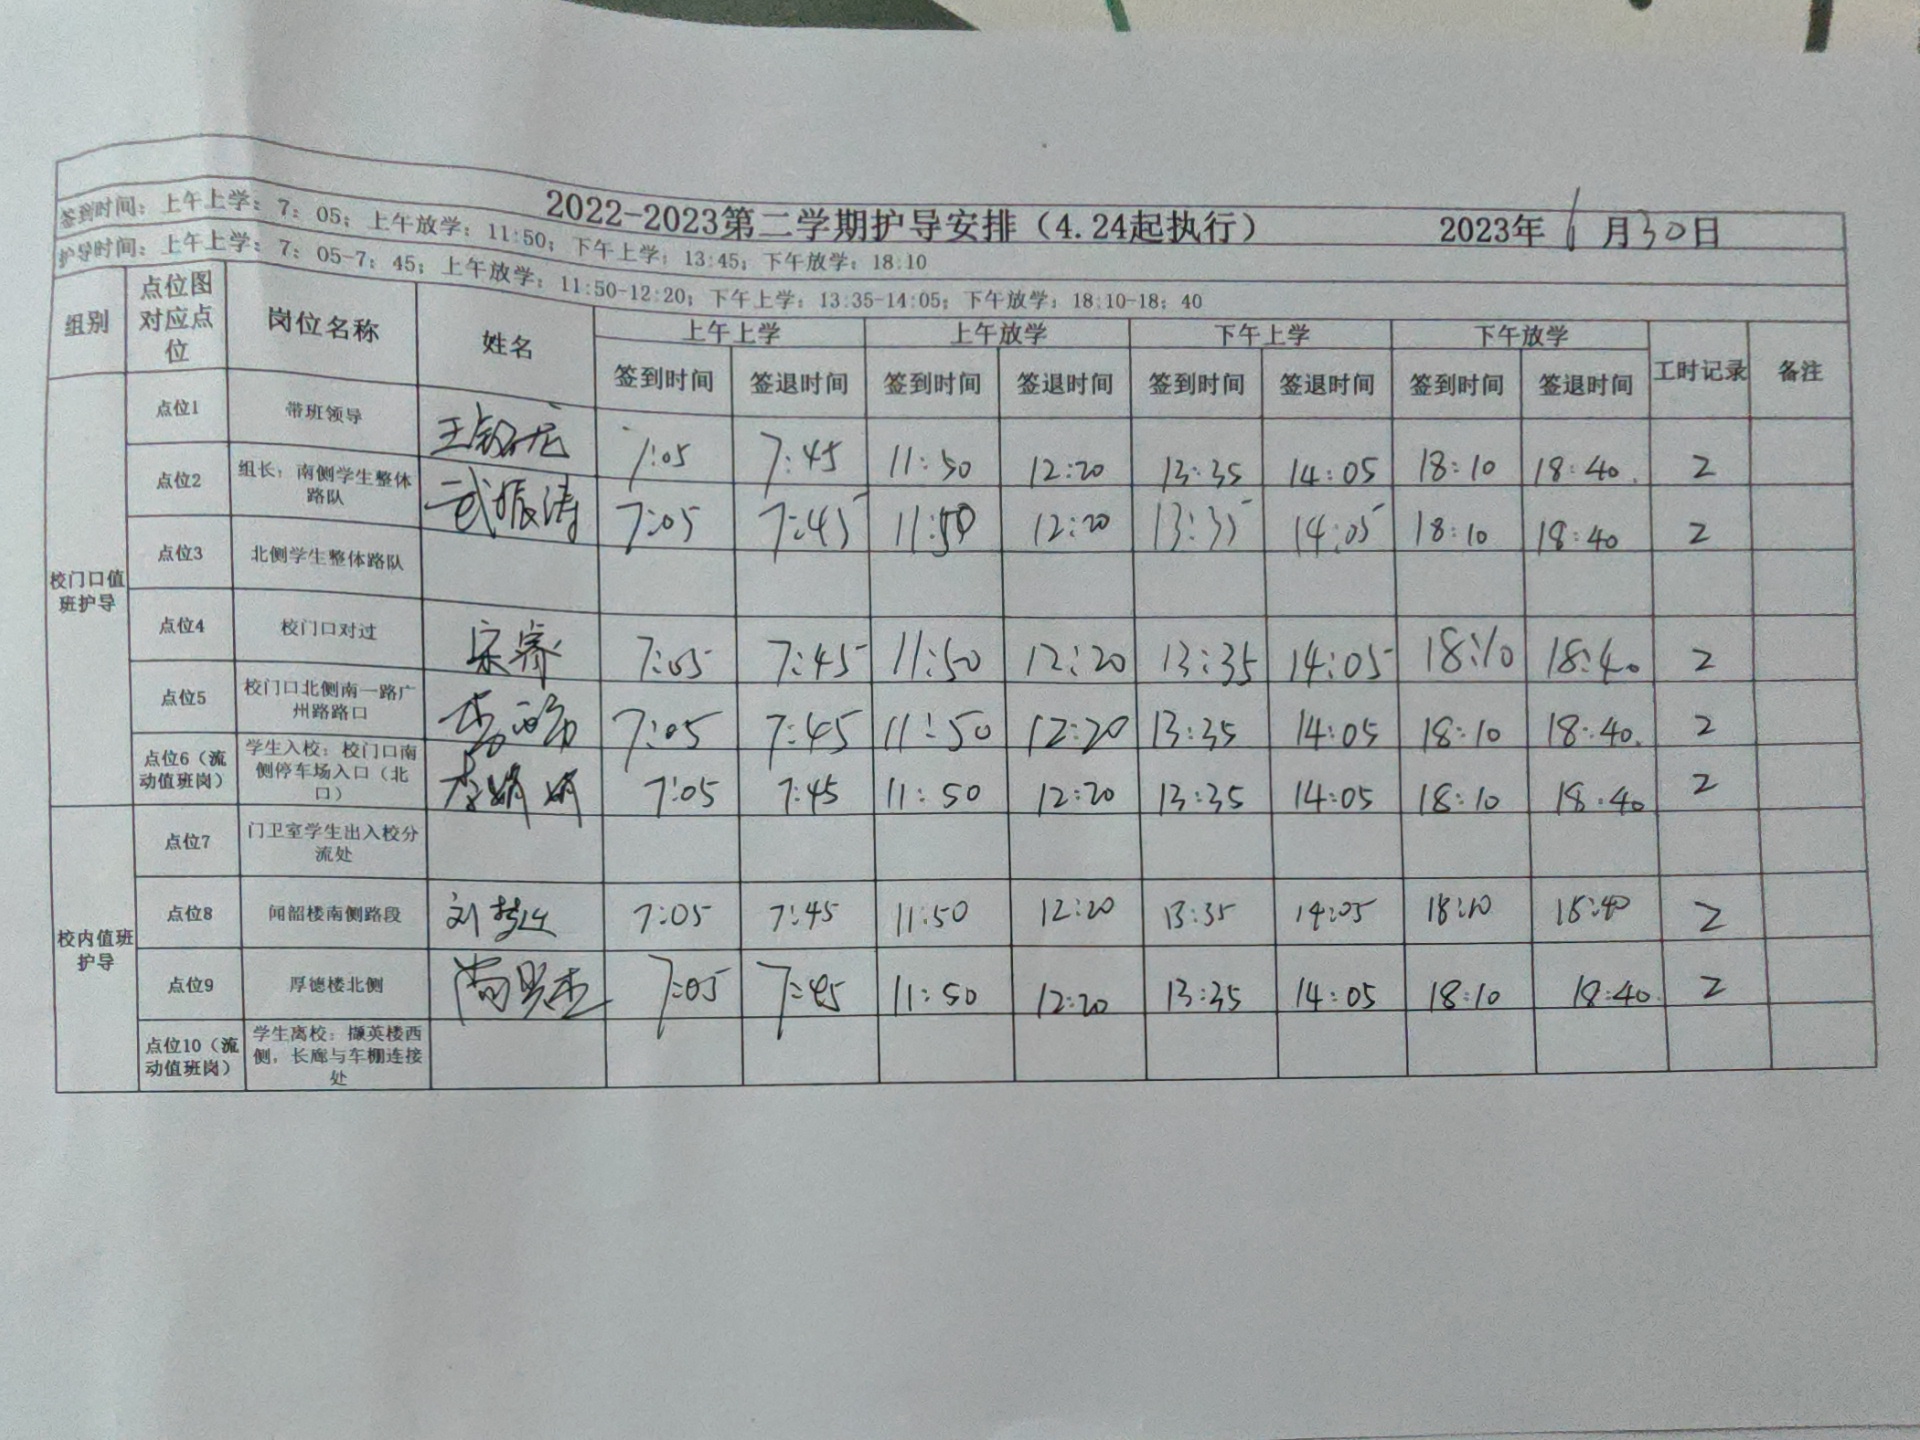 2022-2023第二学期护导安排（4.24起执行） 2023年6月30日
签到时间：上午上学：7：05；上午放学：11:50；下午上学：13:45；下午放学：18:10
护导时间：上午上学：7：05-7：45；上午放学：11:50-12:20；下午上学：13:35-14:05；下午放学：18:10-18：40
组别 点位图对应点位 岗位名称 姓名 上午上学 上午放学 下午上学 下午放学 工时记录 备注
签到时间 签退时间 签到时间 签退时间 签到时间 签退时间 签到时间 签退时间
校门口值班护导
点位1 带班领导 7:05 7:45 11:50 12:20 13:35 14:05 18:10 18:40 2
点位2 组长：南侧学生整体路队 武振涛 7:05 7:45 11:50 12:20 13:35 14:05 18:10 18:40 2
点位3 北侧学生整体路队
点位4 校门口对过 7:05 7:45 11:50 12:20 13:35 14:05 18:10 18:40 2
点位5 校门口北侧南一路广州路路口 7:05 7:45 11:50 12:20 13:35 14:05 18:10 18:40 2
点位6（流动值班岗） 学生入校：校门口南侧停车场入口（北口） 李娟娟 7:05 7:45 11:50 12:20 13:35 14:05 18:10 18:40 2
校内值班护导
点位7 门卫室学生出入校分流处
点位8 闻韶楼南侧路段 7:05 7:45 11:50 12:20 13:35 14:05 18:10 18:40 2
点位9 厚德楼北侧 7:05 7:45 11:50 12:20 13:35 14:05 18:10 18:40 2
点位10（流动值班岗） 学生离校：撷英楼西侧，长廊与车棚连接处